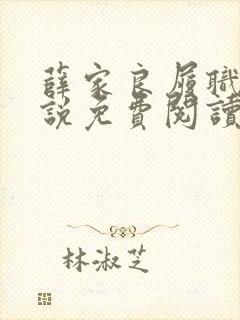 薛家良履職
説免費閱讀
林淑芝